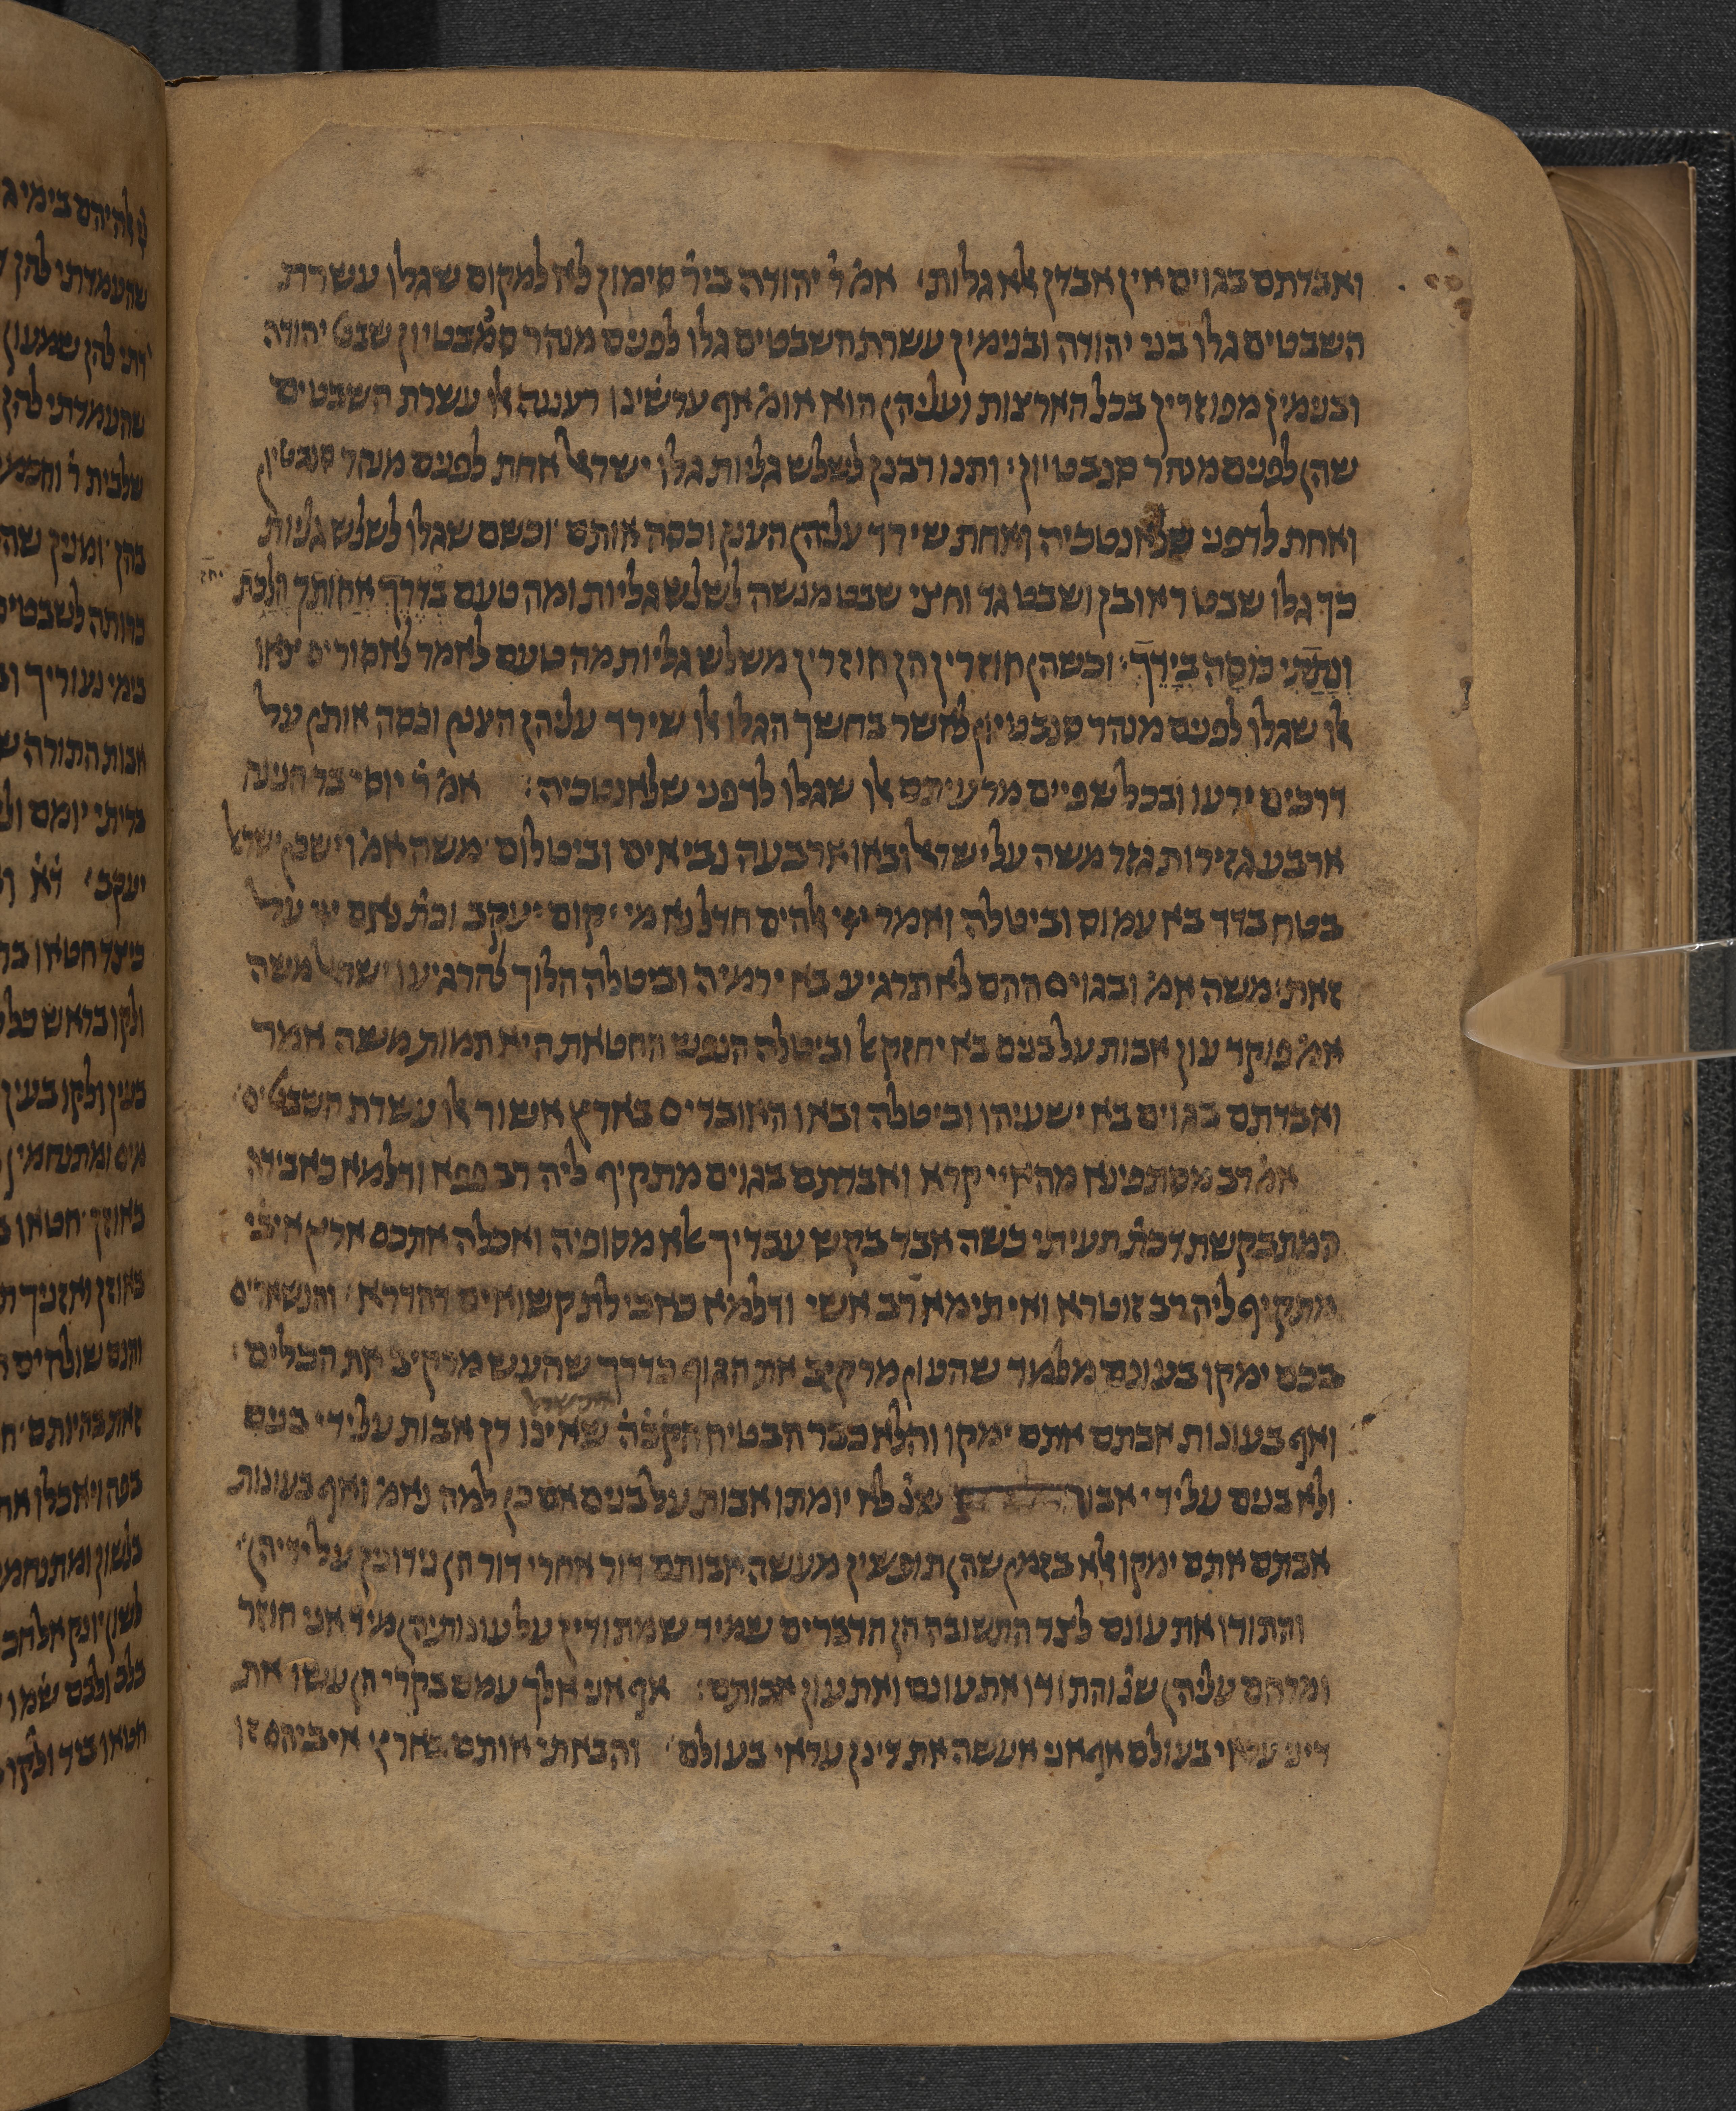 ואבדתם בגוים אין אבדן אלא גלות׳ אמ׳ ר׳ יהודה ביר׳ סימון לא למקום שגלו עשרת
השבטים גלו בני יהודה ובנימין עשרת השבטים גלו לפנים מנהר סמבטיון שבט יהודה
ובנימין מפוזרין בכל הארצות ועליהן הוא אומ׳ אף ערשינו רעננה אלו עשרת השבטים
שהן לפנים מנהר סנבטיון׳ ותנו רבנן לשלש גליות גלו ישראל אחת לפנים מנהר סנבטיון
ואחת לדפני שלאנטכיה ואחת שירד עליהן הענן וכסה אותם׳ וכשם שגלו לשלש גליות
כך גלו שבט ראובן ושבט גד וחצי שבט מנשה לשלש גליות ומה טעם בדרך אחותך הלכת
ונתתי כוסה בידך׃ וכשהן חוזרין הן חוזרין משלש גליות מה טעם לאמר לאסורים צאו
אלו שגלו לפנים מנהר סנבטיון לאשר בחשך הגלו אלו שירד עליהן הענן וכסה אותן על
דרכים ירעו ובכל שפיים מרעיתם אלו שגלו לדפני שלאנטכיה׃ אמ׳ ר׳ יוסי בר חנינה
ארבע גזירות גזר משה על ישראל ובאו ארבעה נביאים וביטלום׳ משה אמ׳ וישכן ישראל
בטח בדד בא עמוס וביטלה ואמר ייי אלהים חדל נא מי יקום יעקב וכת׳ נחם ייי על
זאת׳ משה אמ׳ ובגוים ההם לא תרגיע בא ירמיה וביטלה הלוך להרגיעו ישראל משה
אמ׳ פוקד עון אבות על בנים בא יחזקאל וביטלה הנפש החטאת היא תמות משה אמר
ואבדתם בגוים בא ישעיהו וביטלה ובאו האובדים בארץ אשור אלו עשרת השבטים׳
אמ׳ רב מסתפינא מהאיי קרא ואבדתם בגוים מתקיף ליה רב פפא ודלמא כאבידה
המתבקשת דכת׳ תעיתי כשה אבד בקש עבדיך אלא מסופיה ואכלה אתכם ארץ איבי׳
מתקיף ליה רב זוטרא ואי תימא רב אשי ודלמא כאכילת קשואים דהדרא׳ והנשארים
בכם ימקו בעונם מלמד שהעון מרקיב את הגוף כדרך שהעש מרקיב את הכלים׳
ואף בעונות אבתם אתם ימקו והלא כבר הבטיח הקב׳ה׳ שאינו דן אבות על ידי בנים
ולא בנים על ידי אבות שנ׳ לא יומתו אבות על בנים אם כן למה נאמ׳ ואף בעונות
אבתם אתם ימקו אלא בזמן שהן תופשין מעשה אבותם דור אחרי דור הן נידונין על ידיהן׳
והתודו את עונם לצד התשובה הן הדברים שמיד שמתודין על עונותיהן מיד אני חוזר
ומרחם עליהן שנ׳ והתודו את עונם ואת עון אבותם׃ אף אני אלך עמם בקרי הן עשו את
דיני עראי בעולם אף אני אעשה את דינן עראי בעולם׳ והבאתי אותם בארץ איביהם זו